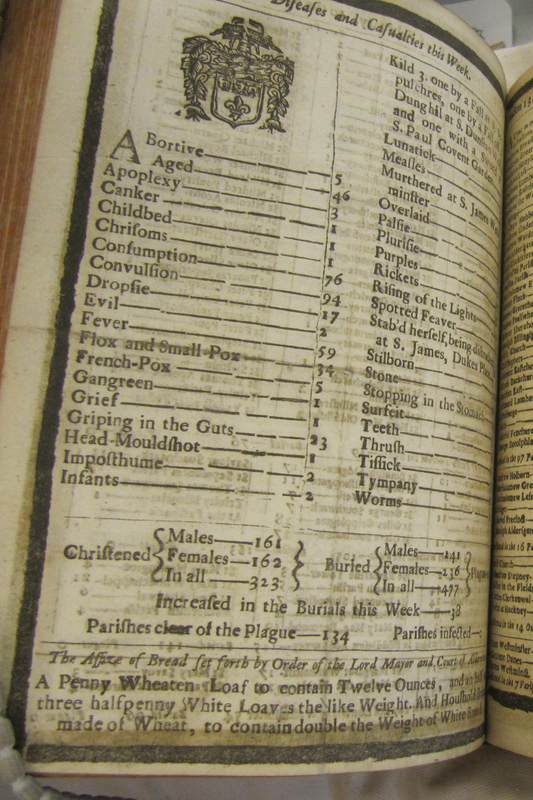 Diſeaſes and Caſualties this Week.
ABortive—5
Aged—46
Apoplexy—3
Canker—1
Childbed—1
Chriſoms—1
Conſumption—76
Convulſion—94
Dropſie—17
Evil—2
Fever—59
Flox and Small-Pox—34
French-Pox—5
Gangreen—1
Grief—1
Griping in the Guts—23
Head-Mouldſhot—1
Impoſthume—2
Infants—2
Kild 3. one by a Fall
pulchres, one by a
Dunghil at S.
and one with a
S. Paul Covent Garden
Lunatick
Meaſles
Murthered at S. James
minſter
Overlaid
Palſie
Pluriſie
Purples
Rickets
Riſing of the Lights
Spotted Feaver
Stab'd herſelf, being
at S. James, Dukes
Stilborn
Stone
Stopping in the Stomach
Surfeit
Teeth
Thruſh
Tiſſick
Tympany
Worms
Chriſtened { Males—161 Females—162 In all—323 }
Buried { Males—241 Females—236 In all—477 }
Increaſed in the Burials this Week—38
Pariſhes clear of the Plague—134 Pariſhes infected—
The Aſſize of Bread ſet forth by Order of the Lord Mayor and Court of
A Penny Wheaten Loaf to contain Twelve Ounces, and
three halfpenny White Loaves the like Weight. And Houſhold
made of Wheat, to contain double the Weight of White